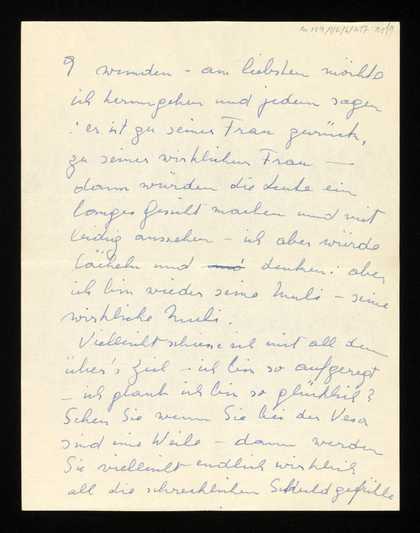 9 wenden - am liebsten möchte
ich herumgehen und jedem sagen
: er ist zu seiner Frau zurück,
zu seiner wirklichen Frau —
dann würden die Leute ein
langes Gesicht machen und mit
leidig aussehen - ich aber würde
lächeln und denken: aber
ich bin wieder seine - seine
wirkliche
Vielleicht schiesse ich mit all dem
über's Ziel - ich bin so aufgeregt
- ich glaub ich bin so glücklich?
Sehen Sie wenn Sie bei der Vera
sind eine Weile - dann werden
Sie vielleicht endlich wirklich
all die schrecklichen Schuldgefühle